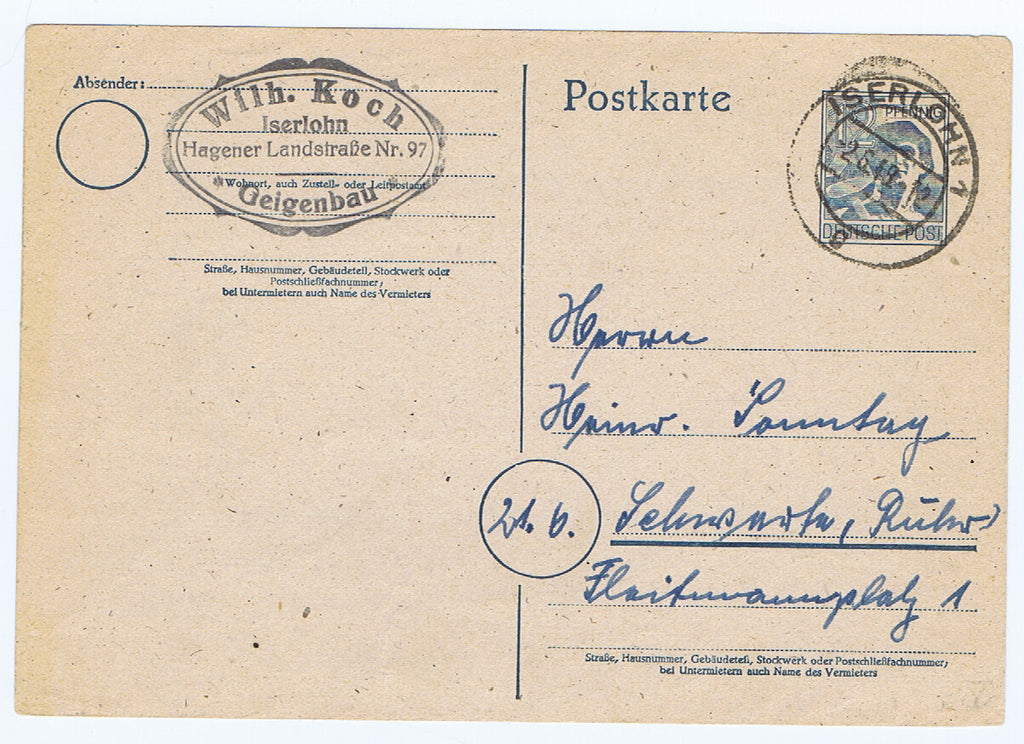 Absender:
Wilh. Koch
Iserlohn
Hagener Landstraße Nr. 97
Wohnort, auch Zustell- oder Leitpostamt
* Geigenbau *
Straße, Hausnummer, Gebäudeteil, Stockwerk oder
Postschließfachnummer;
bei Untermietern auch Name des Vermieters
Postkarte
12 PFENNIG
DEUTSCHE POST
ISERLOHN 1
Herrn
Heinr. Sonntag
21. b.
Schwerte, (Ruhr)
Fleitmannplatz 1
Straße, Hausnummer, Gebäudeteil, Stockwerk oder Postschließfachnummer;
bei Untermietern auch Name des Vermieters